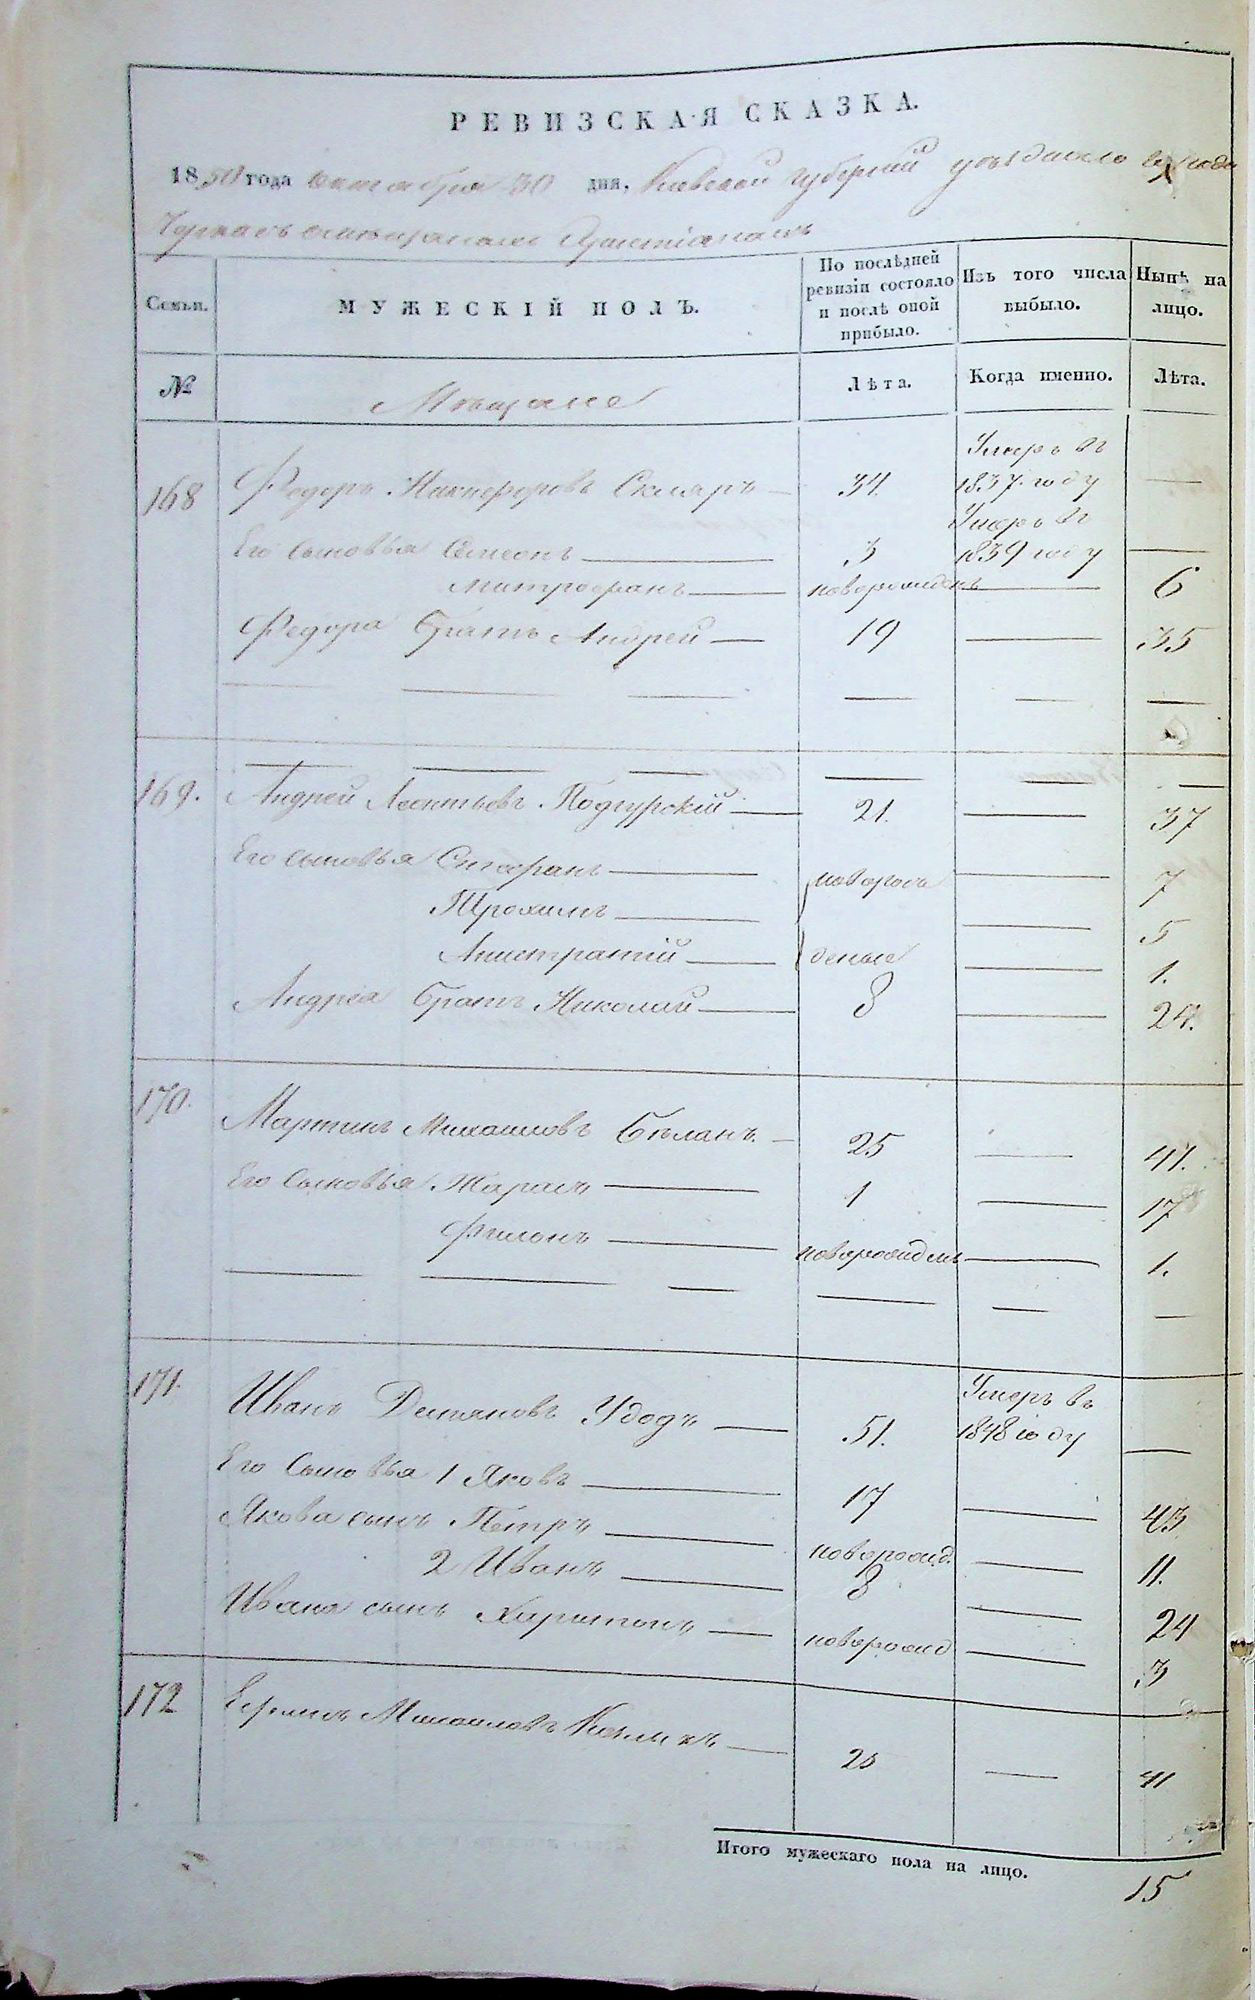 РЕВИЗСКАЯ СКАЗКА.
1850 года октября 30 дня, Киевской губернии уезднаго города
Черкасъ христіанахъ
Семьи.
МУЖЕСКІЙ ПОЛЪ.
По послѣдней ревизіи состояло и послѣ оной прибыло.
Изъ того числа выбыло.
Нынѣ на лицо.
№
Мещане
Лѣта.
Когда именно.
Лѣта.
168 Федоръ Никифоровъ Скляръ — 34. Умеръ въ 1837 году —
Его сыновья Симеонъ — 3 Умеръ въ 1839 году —
Митрофанъ — новорожденъ — 6
Федора братъ Андрей — 19 — 35
169. Андрей Леонтьевъ Подгурскій — 21. — 37
Его сыновья Стефанъ — новорож — 7
Трохимъ — 5
Анистратій — денные — 1.
Андрея братъ Николай — 8 — 24.
170. Мартинъ Михаиловъ Бѣланъ — 25 — 41.
Его сыновья Тарасъ — 1 — 17
Филонъ — новорожденъ — 1.
171. Иванъ Демяновъ Удодъ — 51. Умеръ въ 1848 году —
Его сыновья 1 Яковъ — 17 — 43
Якова сынъ Петръ — новорожд. — 11.
2 Иванъ — 8 — 24
Ивана сынъ Харитонъ — новорожд — 3
172 Михаиловъ — 25 — 41
Итого мужескаго пола на лицо.
15